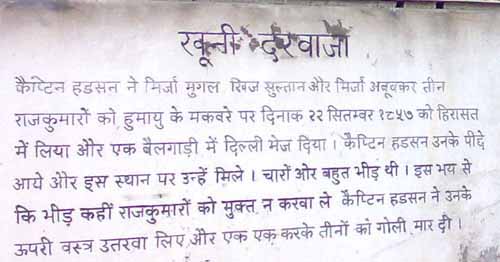 खूनी दरवाजा
कैप्टिन हडसन ने मिर्जा मुगल, खिज सुल्तान और मिर्जा अबूवकर तीन
राजकुमारों को हुमायु के मकवरे पर दिनाक २२ सितम्वर १८५७ को हिरासत
में लिया और एक बैलगाड़ी में दिल्ली भेज दिया । कैप्टिन हडसन उनके पीछे
आये और इस स्थान पर उन्हें मिले । चारों ओर बहुत भीड़ थी । इस भय से
कि भीड़ कहीं राजकुमारों को मुक्त न करवा ले कैप्टिन हडसन ने उनके
ऊपरी वस्त्र उतरवा लिए और एक एक करके तीनों को गोली मार दी ।